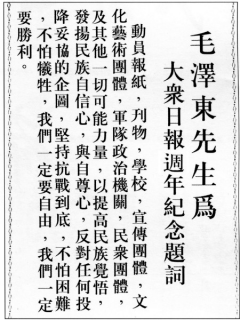 毛澤東先生爲
大衆日報週年紀念題詞
動員報紙，刊物，學校，宣傳團體，文
化藝術團體，軍隊政治機關，民衆團體，
及其他一切可能力量，以提高民族覺悟，
發揚民族自信心，與自尊心，反對任何投
降妥協的企圖，堅持抗戰到底，不怕困難
，不怕犧牲，我們一定要自由，我們一定
要勝利。